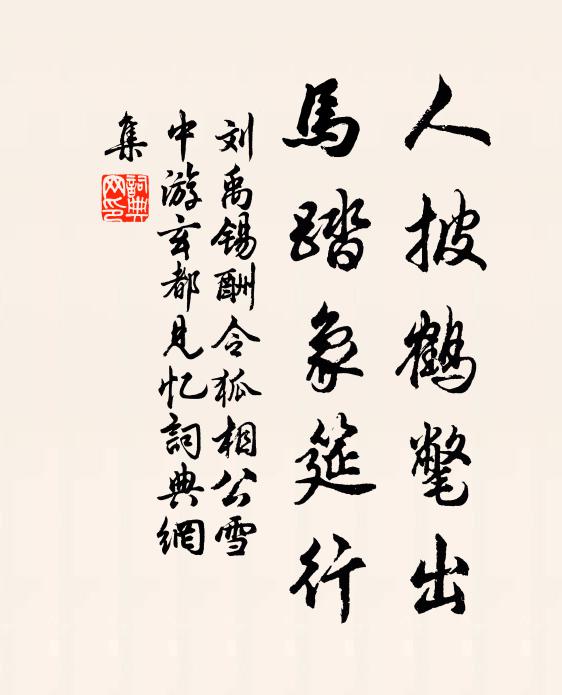 人披鶴氅出
馬踏象筵行
刘禹锡酬令狐相公雪
中游玄都見忆詞典網
集
詞典網印